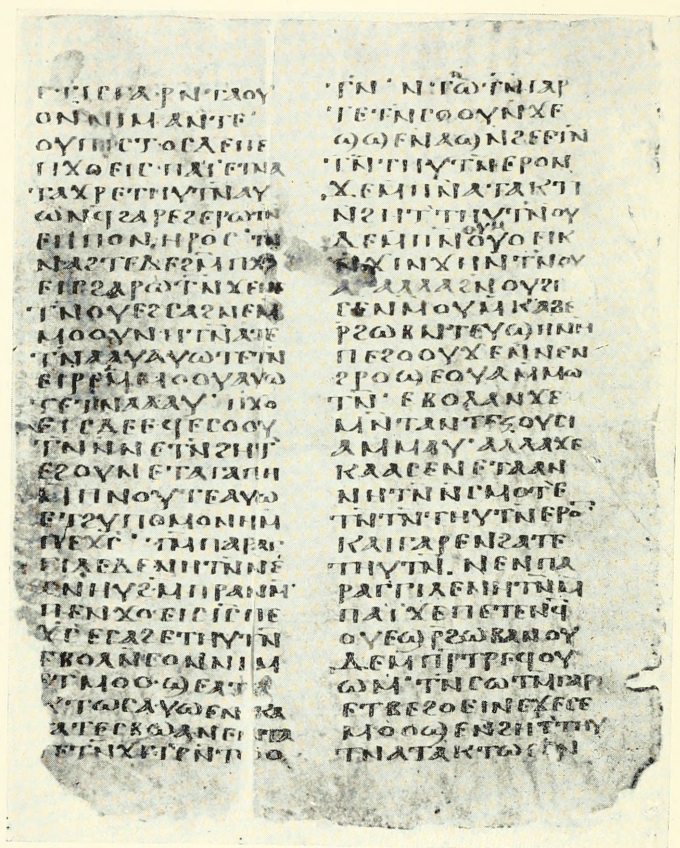 ⲧⲡⲓⲥⲧⲓⲥ ⲅⲁⲣ ⲛⲧⲁⲟⲩ
ⲟⲛ ⲛⲓⲙ ⲁⲛ ⲧⲉ
ⲟⲩⲡⲓⲥⲧⲟⲥ ⲇⲉ ⲡⲉ
ⲡϫⲟⲉⲓⲥ ⲡⲁⲓ ⲉⲧⲛⲁ
ⲧⲁϫⲣⲉ ⲧⲏⲩⲧⲛ ⲁⲩ
ⲱ ⲛϥϩⲁⲣⲉϩ ⲉⲣⲱⲧⲛ
ⲉⲡⲡⲟⲛⲏⲣⲟⲥ ⲧⲛ
ⲛⲁϩⲧⲉ ⲇⲉ ϩⲙ ⲡϫⲟ
ⲉⲓⲥ ϩⲁⲣⲱⲧⲛ ϫⲉ ⲛⲉ
ⲧⲛⲟⲩⲉϩⲥⲁϩⲛⲉ ⲙ
ⲙⲟⲟⲩ ⲛⲏⲧⲛ ⲁⲧⲉ
ⲧⲛⲁⲁⲩ ⲁⲩⲱ ⲧⲉⲧⲛ
ⲉⲓⲣⲉ ⲙⲙⲟⲟⲩ ⲁⲩⲱ
ⲧⲉⲧⲛⲁⲁⲁⲩ ⲡϫⲟ
ⲉⲓⲥ ⲇⲉ ⲉϥⲉⲥⲟⲟⲩ
ⲧⲛ ⲛⲛⲉⲧⲛϩⲏⲧ
ⲉϩⲟⲩⲛ ⲉⲧⲁⲅⲁⲡⲏ
ⲙⲡⲛⲟⲩⲧⲉ ⲁⲩⲱ
ⲉⲑⲩⲡⲟⲙⲟⲛⲏ ⲙ
ⲡⲉⲭⲥ ⲧⲙⲡⲁⲣⲁⲅ
ⲅⲓⲗⲉ ⲇⲉ ⲛⲏⲧⲛ ⲛⲉ
ⲥⲛⲏⲩ ϩⲙ ⲡⲣⲁⲛ ⲙ
ⲡⲉⲛϫⲟⲉⲓⲥ ⲓⲥ ⲡⲉ
ⲭⲥ ⲉⲥⲁϩⲉⲧⲏⲩⲧⲛ
ⲉⲃⲟⲗ ⲛⲥⲟⲛ ⲛⲓⲙ
ⲉⲧⲙⲟⲟϣⲉ ⲁⲧⲁ
ⲕⲧⲱⲥ ⲁⲩⲱ ⲉⲛ ⲕⲁ
ⲧⲁ ⲧⲉⲥⲃⲱ ⲁⲛ ⲉⲛⲧⲁ
ⲧⲉⲧⲛϫⲓⲧⲥ ⲛⲧⲟⲟ
ⲧⲛ ⲛⲧⲱⲧⲛ ⲅⲁⲣ
ⲧⲉⲧⲛⲥⲟⲟⲩⲛ ϫⲉ
ϣϣⲉ ⲛⲁϣ ⲛϩⲉ ⲉⲧⲛ
ⲧⲛⲧⲏⲩⲧⲛ ⲉⲣⲟⲛ
ϫⲉ ⲙⲡⲛⲁⲧⲁⲕⲧⲓ
ⲛϩⲏⲧⲧⲏⲩⲧⲛ ⲟⲩ
ⲇⲉ ⲙⲡⲛⲟⲩⲉⲙ ⲟⲩⲟⲉⲓⲕ
ⲛϫⲓⲛϫⲏ ⲛⲧⲛ ⲟⲩ
ⲁ ⲁⲗⲗⲁ ϩⲛ ⲟⲩϩⲓ
ⲥⲉ ⲙⲛ ⲟⲩⲙⲕⲁϩ ⲉ
ⲣϩⲱⲃ ⲛⲧⲉⲩϣⲏ ⲙⲛ
ⲡⲉϩⲟⲟⲩ ϫⲉ ⲛⲛⲉⲛ
ϩⲣⲟϣ ⲉⲟⲩⲁ ⲙⲙⲱ
ⲧⲛ ⲉⲃⲟⲗ ⲁⲛ ϫⲉ
ⲙⲛⲧⲁⲛ ⲧⲉⲝⲟⲩⲥⲓ
ⲁ ⲙⲙⲁⲩ ⲁⲗⲗⲁ ϫⲉ
ⲕⲁⲁⲥ ⲉⲛⲉⲧⲁⲁⲛ
ⲛⲏⲧⲛ ⲛⲥⲙⲟⲧ ⲉ
ⲧⲛⲧⲛⲧⲏⲩⲧⲛ ⲉⲣⲟⲛ
ⲕⲁⲓ ⲅⲁⲣ ⲉⲛϩⲁⲧⲉ
ⲧⲏⲩⲧⲛ ⲛⲉⲛⲡⲁ
ⲣⲁⲅⲅⲓⲗⲉ ⲛⲏⲧⲛ ⲙ
ⲡⲁⲓ ϫⲉ ⲡⲉⲧⲉⲛϥ
ⲟⲩⲉϣ ⲣϩⲱⲃ ⲁⲛ ⲟⲩ
ⲇⲉ ⲙⲡⲣⲧⲣⲉϥⲟⲩ
ⲱⲙ ⲧⲛⲥⲱⲧⲙ ⲅⲁⲣ
ⲉⲧⲃⲉ ϩⲟⲉⲓⲛⲉ ϫⲉ ⲥⲉ
ⲙⲟⲟϣⲉ ⲛϩⲏⲧⲧⲏⲩ
ⲧⲛ ⲁⲧⲁⲕⲧⲱⲥ ⲉⲛ